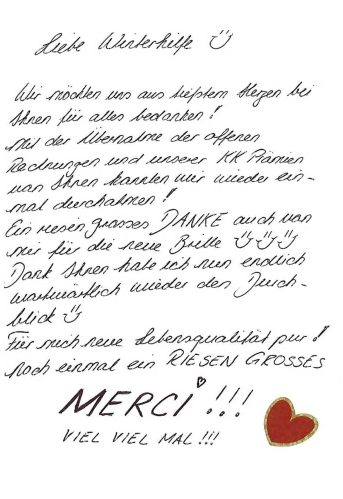 Liebe Winterhilfe ☺
Wir möchten uns aus tiefstem Herzen bei
Ihnen für alles bedanken!
Mit der Übernahme der offenen
Rechnungen und unserer KK Prämien
von Ihnen konnten wir wieder ein-
mal durchatmen!
Ein riesen grosses DANKE auch von
mir für die neue Brille ☺☺☺
Dank Ihnen habe ich nun endlich
wortwörtlich wieder den Durch-
blick ☺
Für mich neue Lebensqualität pur!
Noch einmal ein RIESEN GROSSES
MERCI !!!
VIEL VIEL MAL !!!